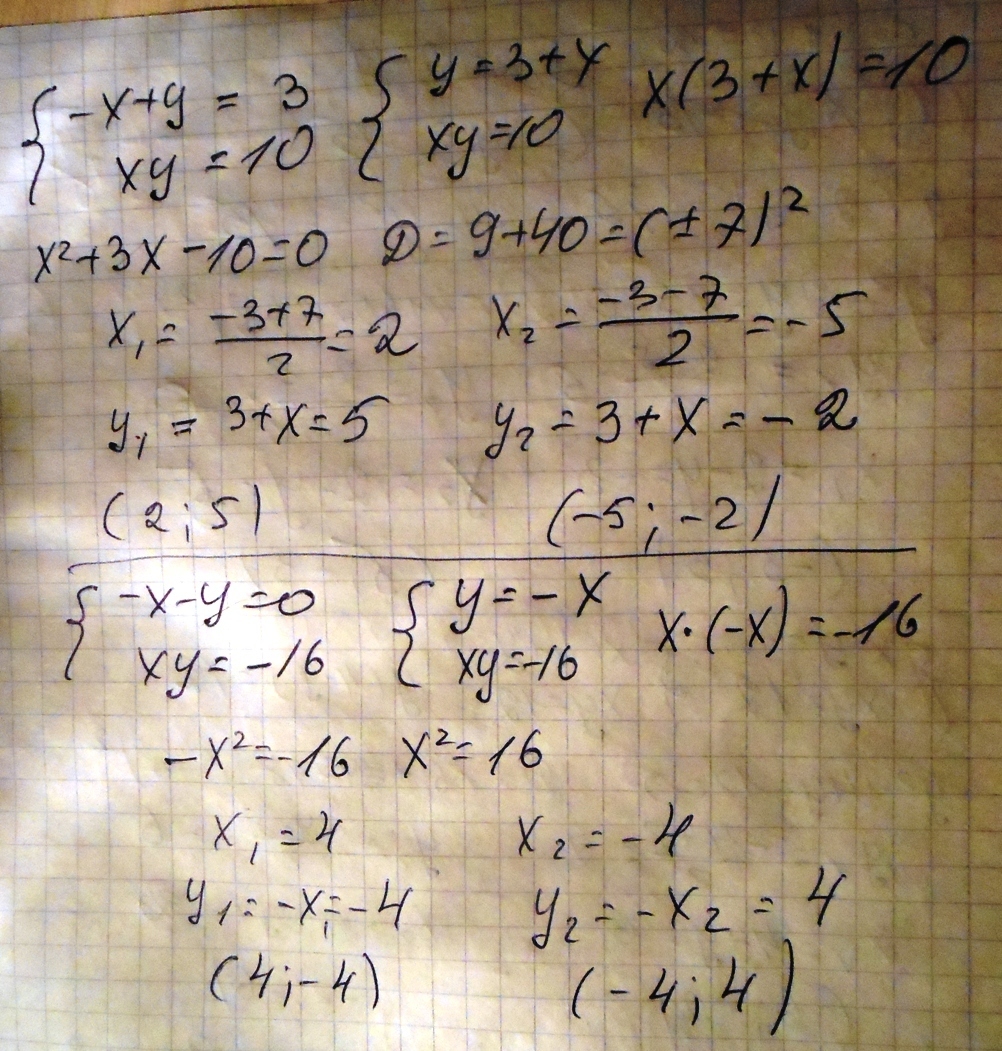 { -x+y = 3 { y=3+x x(3+x)=10
xy = 10 xy=10
x²+3x-10=0 D=9+40=(±7)²
x₁ = (-3+7)/2 = 2 x₂ = (-3-7)/2 = -5
y₁ = 3+x=5 y₂ = 3+x = -2
(2;5) (-5;-2)
{ -x-y=0 { y=-x x·(-x)=-16
xy=-16 xy=-16
-x²=-16 x²=16
x₁=4 x₂=-4
y₁=-x₁=-4 y₂=-x₂=4
(4;-4) (-4;4)